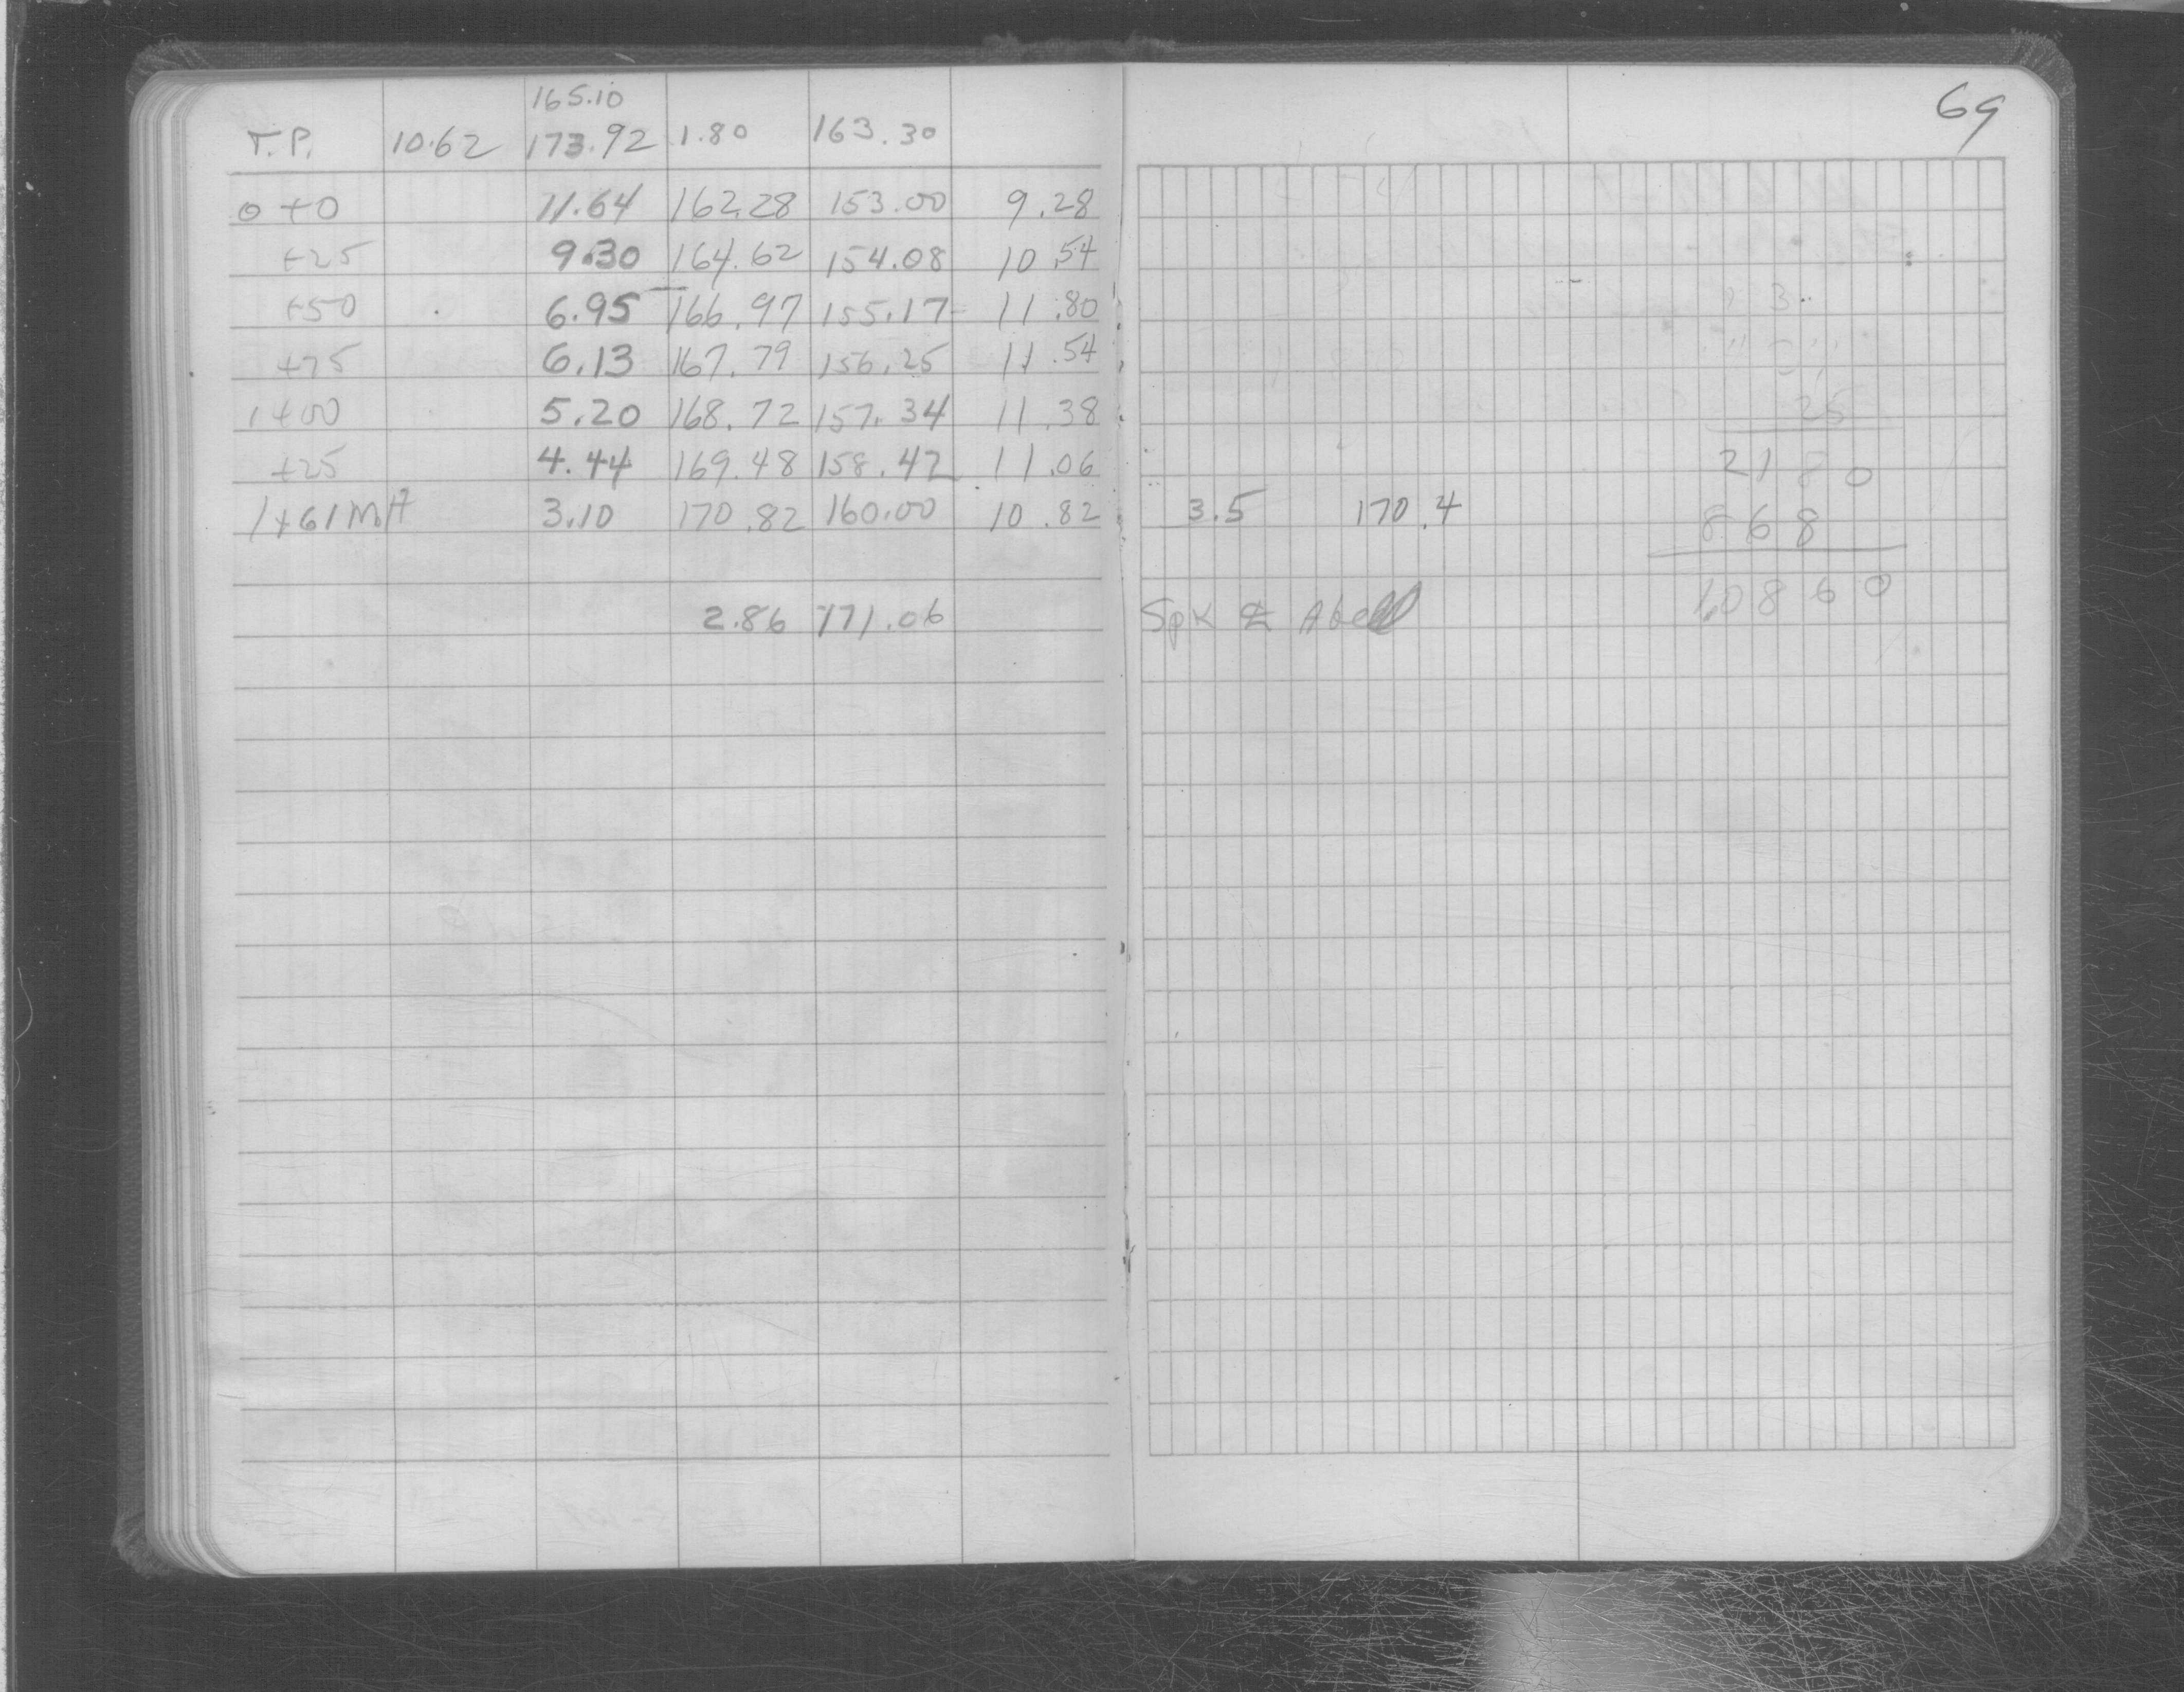 69
165.10
T.P. 10.62 173.92 1.80 163.30
0+0 11.64 162.28 153.00 9.28
+25 9.30 164.62 154.08 10.54
+50 6.95 166.97 155.17 11.80
+75 6.13 167.79 156.25 11.54
1+00 5.20 168.72 157.34 11.38
+25 4.44 169.48 158.42 11.06
1+61 M.H 3.10 170.82 160.00 10.82 3.5 170.4
2.86 171.06 Spk
25
2180
868
10860